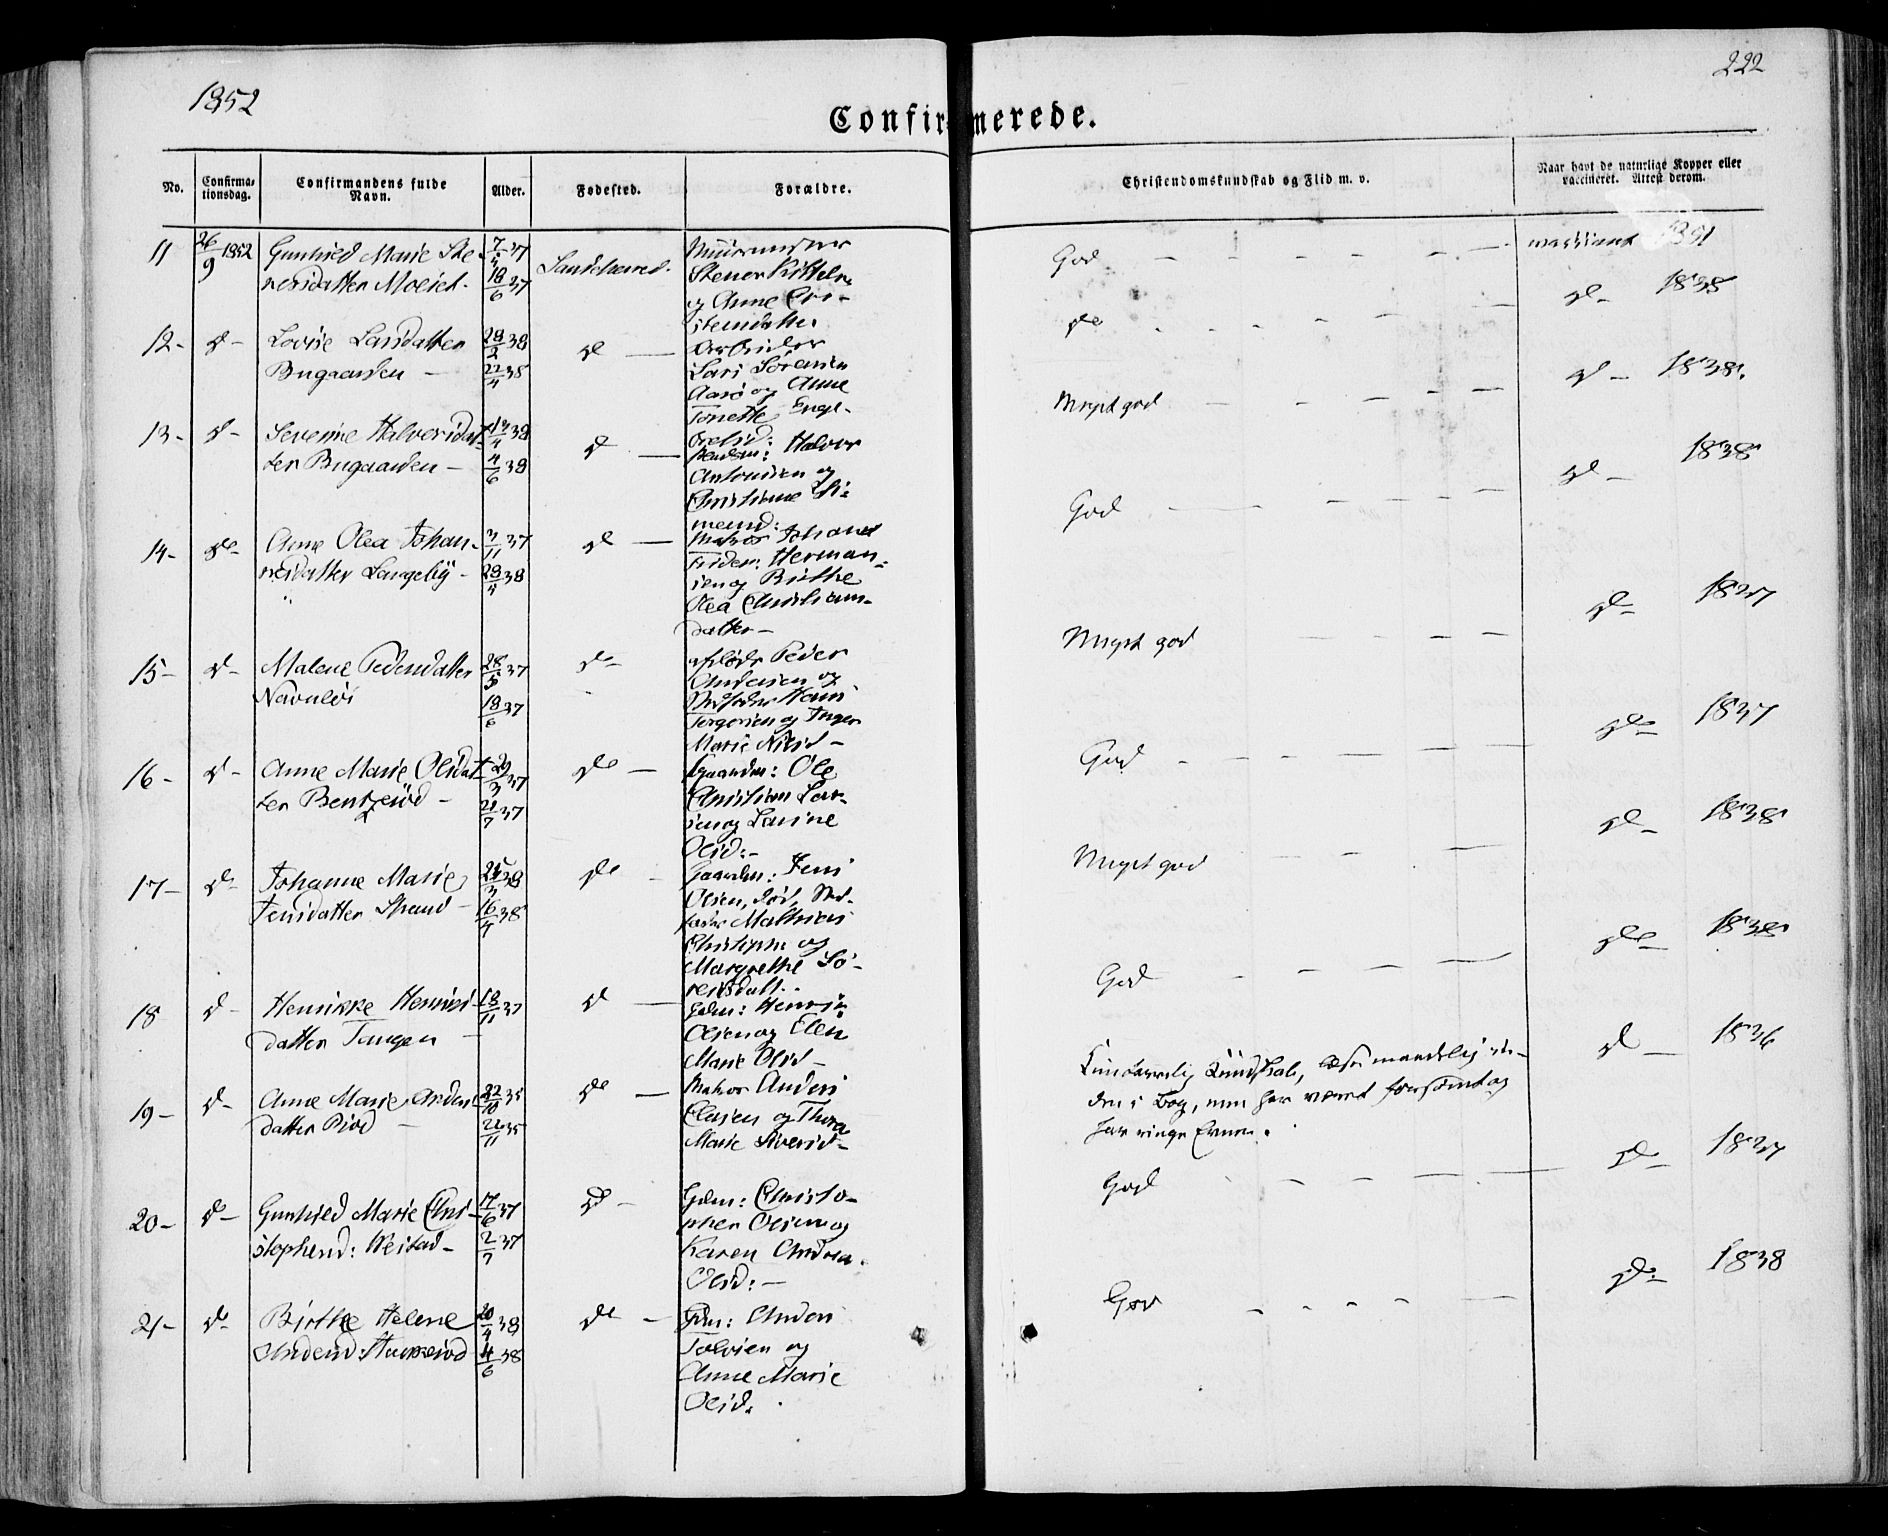 1852
222
Confirmerede.
No.
Confirma-
tionsdag.
Confirmandens fulde
Navn.
Alder.
Fødested.
Forældre.
Christendomskundskab og Flid m. v.
Naar havt de naturlige Kopper eller
vaccineret. Attest derom.
11
26/9 1852
Gunhild Marie Ste-
nersdatter
7/5 37
18/6 37
Sandeherred.
Stener Kittels.
og Anne
steinsdatter
God
vaccineret 1851
12-
d-
Lovise Larsdatter
Bugaarden -
28/2 38
22/4 38
d
Lars Sørensen
Aasø og Anne
Tonette Engel-
do
d- 1838
13-
d-
Severine Halvorsdat-
ter Bugaarden -
4/6 38
d
Halvor
Antonisen og
Christiane Si-
mensd:
Meget god
d- 1838.
14-
do-
Anne Olea Johan-
nesdatter Langeby -
3/11 37
28/5 38
d
Matros Johanes
Herman-
sen og Birthe
Olea Christians-
datter -
God
d- 1838
15-
d-
Malene Pedersdatter
Navnløs
28/5 37
18/6 37
d-
afdøde Peder
Andersen og
Stedfader Hans
Torgersen og Inger
Marie Nilsd -
Meget god
d- 1837
16-
d-
Anne Marie Olsdat-
ter Bentzerød -
29/3 37
21/7 37
do
Gaardm: Ole
Christian Lar-
sen og Lavine
Olsd: -
God
do 1837
17-
d-
Johanne Marie
Jensdatter Strand -
25/3 38
16/4 38
do
Gaardm: Jens
Olsen, død, Sted-
fader Mathias
Christoph: og
Margrethe Sø-
rensdatt.
Meget god
d- 1838
18
d-
Henrikke Henriks-
datter Tangen -
18/11 37
d
Gdm: Henrik
Olsen og Ellen
Marie Olsd -
God
do 1838
19-
d-
Anne Marie Anders-
datter Riød -
22/10 35
22/11 35
do
Matros Anders
Clasen og Thora
Marie Siversd -
Kundskab, læser
den i Bog, men har været forsømt og
har ringe Evner.
d 1836
20-
d-
Gunhild Marie Chri-
stophersd: Westad -
17/6 37
2/7 37
d-
Gdm: Christo-
pher Olsen og
Karen Andrea
Olsd: -
God
d- 1837
21-
d-
Birthe Helene
Andersd:
20/4 38
4/6 38
do
Gdm: Anders
Tolvsen og
Anne Marie
Olsd.
God
d- 1838